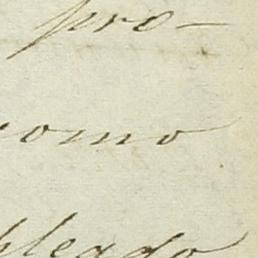 pro-
como
pleado